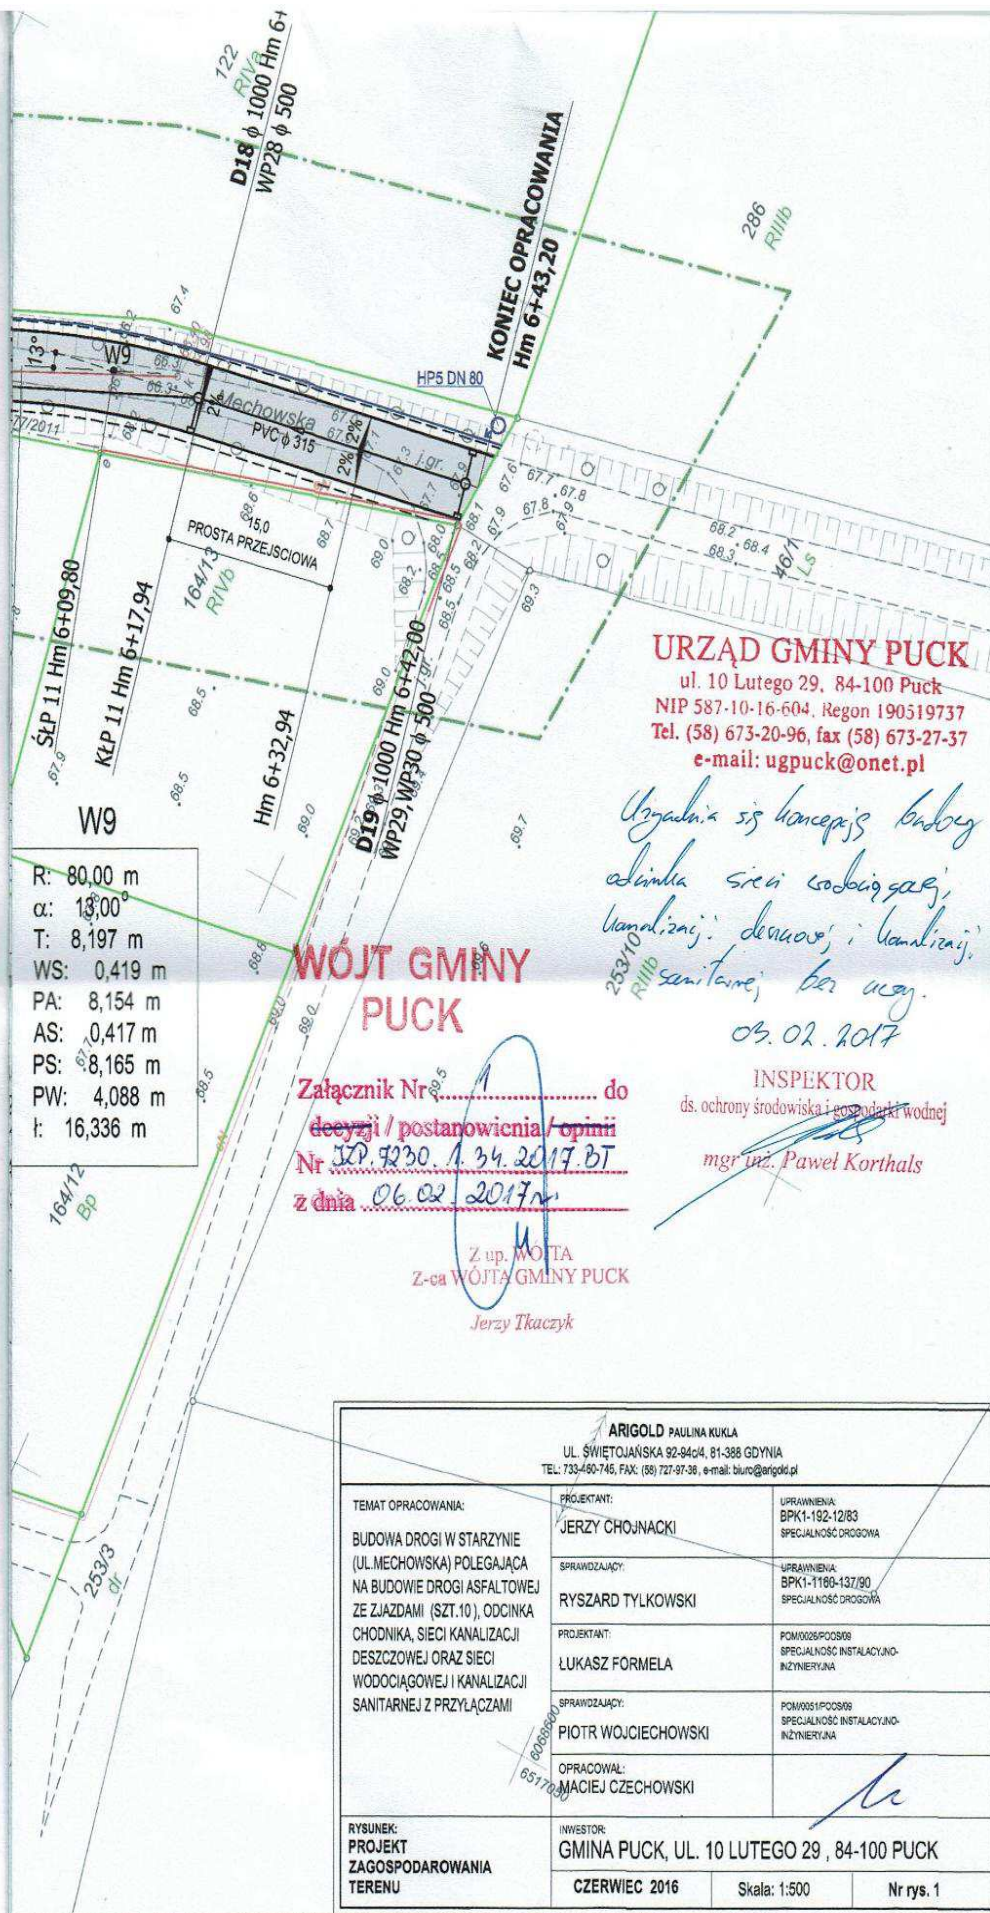 122
RIVa
D18 ϕ 1000 Hm 6+
WP28 ϕ 500
KONIEC OPRACOWANIA
Hm 6+43,20
286
RIIIb
67.4
66.2
13°
W9
66.3
66.3
2%
Mechowska
PVC ϕ 315
77/2011
HP5 DN 80
2% 2%
j.gr.
67.3
67.7
67.9
67.6
67.7
67.8
67.8
67.9
67.9
68.1
68.2
68.2
68.4
68.3
46/1
Ls
68.6
68.7
15,0
PROSTA PRZEJŚCIOWA
164/13
RIVb
69.0
68.2
68.0
68.5
68.5
68.5
69.3
ŚŁP 11 Hm 6+09,80
KŁP 11 Hm 6+17,94
Hm 6+32,94
D19 ϕ 1000 Hm 6+42,00
WP29, WP30 ϕ 500
j.gr.
69.0
68.5
67.9
68.5
69.0
69.2
69.4
69.7
URZĄD GMINY PUCK
ul. 10 Lutego 29, 84-100 Puck
NIP 587-10-16-604, Regon 190519737
Tel. (58) 673-20-96, fax (58) 673-27-37
e-mail: ugpuck@onet.pl
Uzgadnia się koncepcję budowy
odcinka sieci wodociągowej,
kanalizacji deszczowej i kanalizacji
sanitarnej bez uwag.
03.02.2017
253/10
RIIIb
INSPEKTOR
ds. ochrony środowiska i gospodarki wodnej
mgr inż. Paweł Korthals
W9
R: 80,00 m
α: 13,00°
T: 8,197 m
WS: 0,419 m
PA: 8,154 m
AS: 0,417 m
PS: 8,165 m
PW: 4,088 m
Ł: 16,336 m
68.8
69.0
69.0
69.6
68.5
69.5
WÓJT GMINY
PUCK
Załącznik Nr 1 do
decyzji / postanowienia / opinii
Nr IZP.7230.1.34.2017.BT
z dnia 06.02.2017r.
Z up. WÓJTA
Z-ca WÓJTA GMINY PUCK
Jerzy Tkaczyk
164/12
Bp
253/3
dr
ARIGOLD PAULINA KUKLA
UL. ŚWIĘTOJAŃSKA 92-94c/4, 81-388 GDYNIA
TEL: 733-460-745, FAX: (58) 727-97-38, e-mail: biuro@arigold.pl
TEMAT OPRACOWANIA:
BUDOWA DROGI W STARZYNIE
(UL.MECHOWSKA) POLEGAJĄCA
NA BUDOWIE DROGI ASFALTOWEJ
ZE ZJAZDAMI (SZT.10), ODCINKA
CHODNIKA, SIECI KANALIZACJI
DESZCZOWEJ ORAZ SIECI
WODOCIĄGOWEJ I KANALIZACJI
SANITARNEJ Z PRZYŁĄCZAMI
PROJEKTANT:
JERZY CHOJNACKI
UPRAWNIENIA:
BPK1-192-12/83
SPECJALNOŚĆ DROGOWA
SPRAWDZAJĄCY:
RYSZARD TYLKOWSKI
UPRAWNIENIA:
BPK1-1160-137/90
SPECJALNOŚĆ DROGOWA
PROJEKTANT:
ŁUKASZ FORMELA
POM/0026/POOS/09
SPECJALNOŚĆ INSTALACYJNO-
INŻYNIERYJNA
SPRAWDZAJĄCY:
PIOTR WOJCIECHOWSKI
POM/0051/POOS/09
SPECJALNOŚĆ INSTALACYJNO-
INŻYNIERYJNA
OPRACOWAŁ:
MACIEJ CZECHOWSKI
6068600
6517050
RYSUNEK:
PROJEKT
ZAGOSPODAROWANIA
TERENU
INWESTOR:
GMINA PUCK, UL. 10 LUTEGO 29 , 84-100 PUCK
CZERWIEC 2016
Skala: 1:500
Nr rys. 1